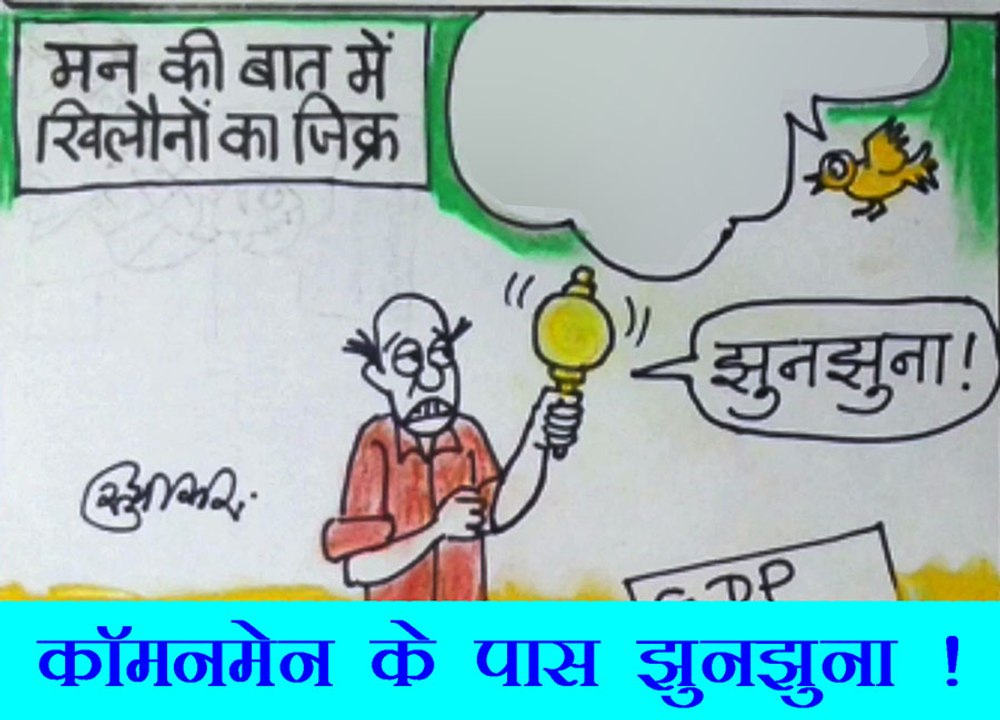 मन की बात में
खिलौनों का जिक्र
झुनझुना!
सुधाकर
GDP
कॉमनमेन के पास झुनझुना !